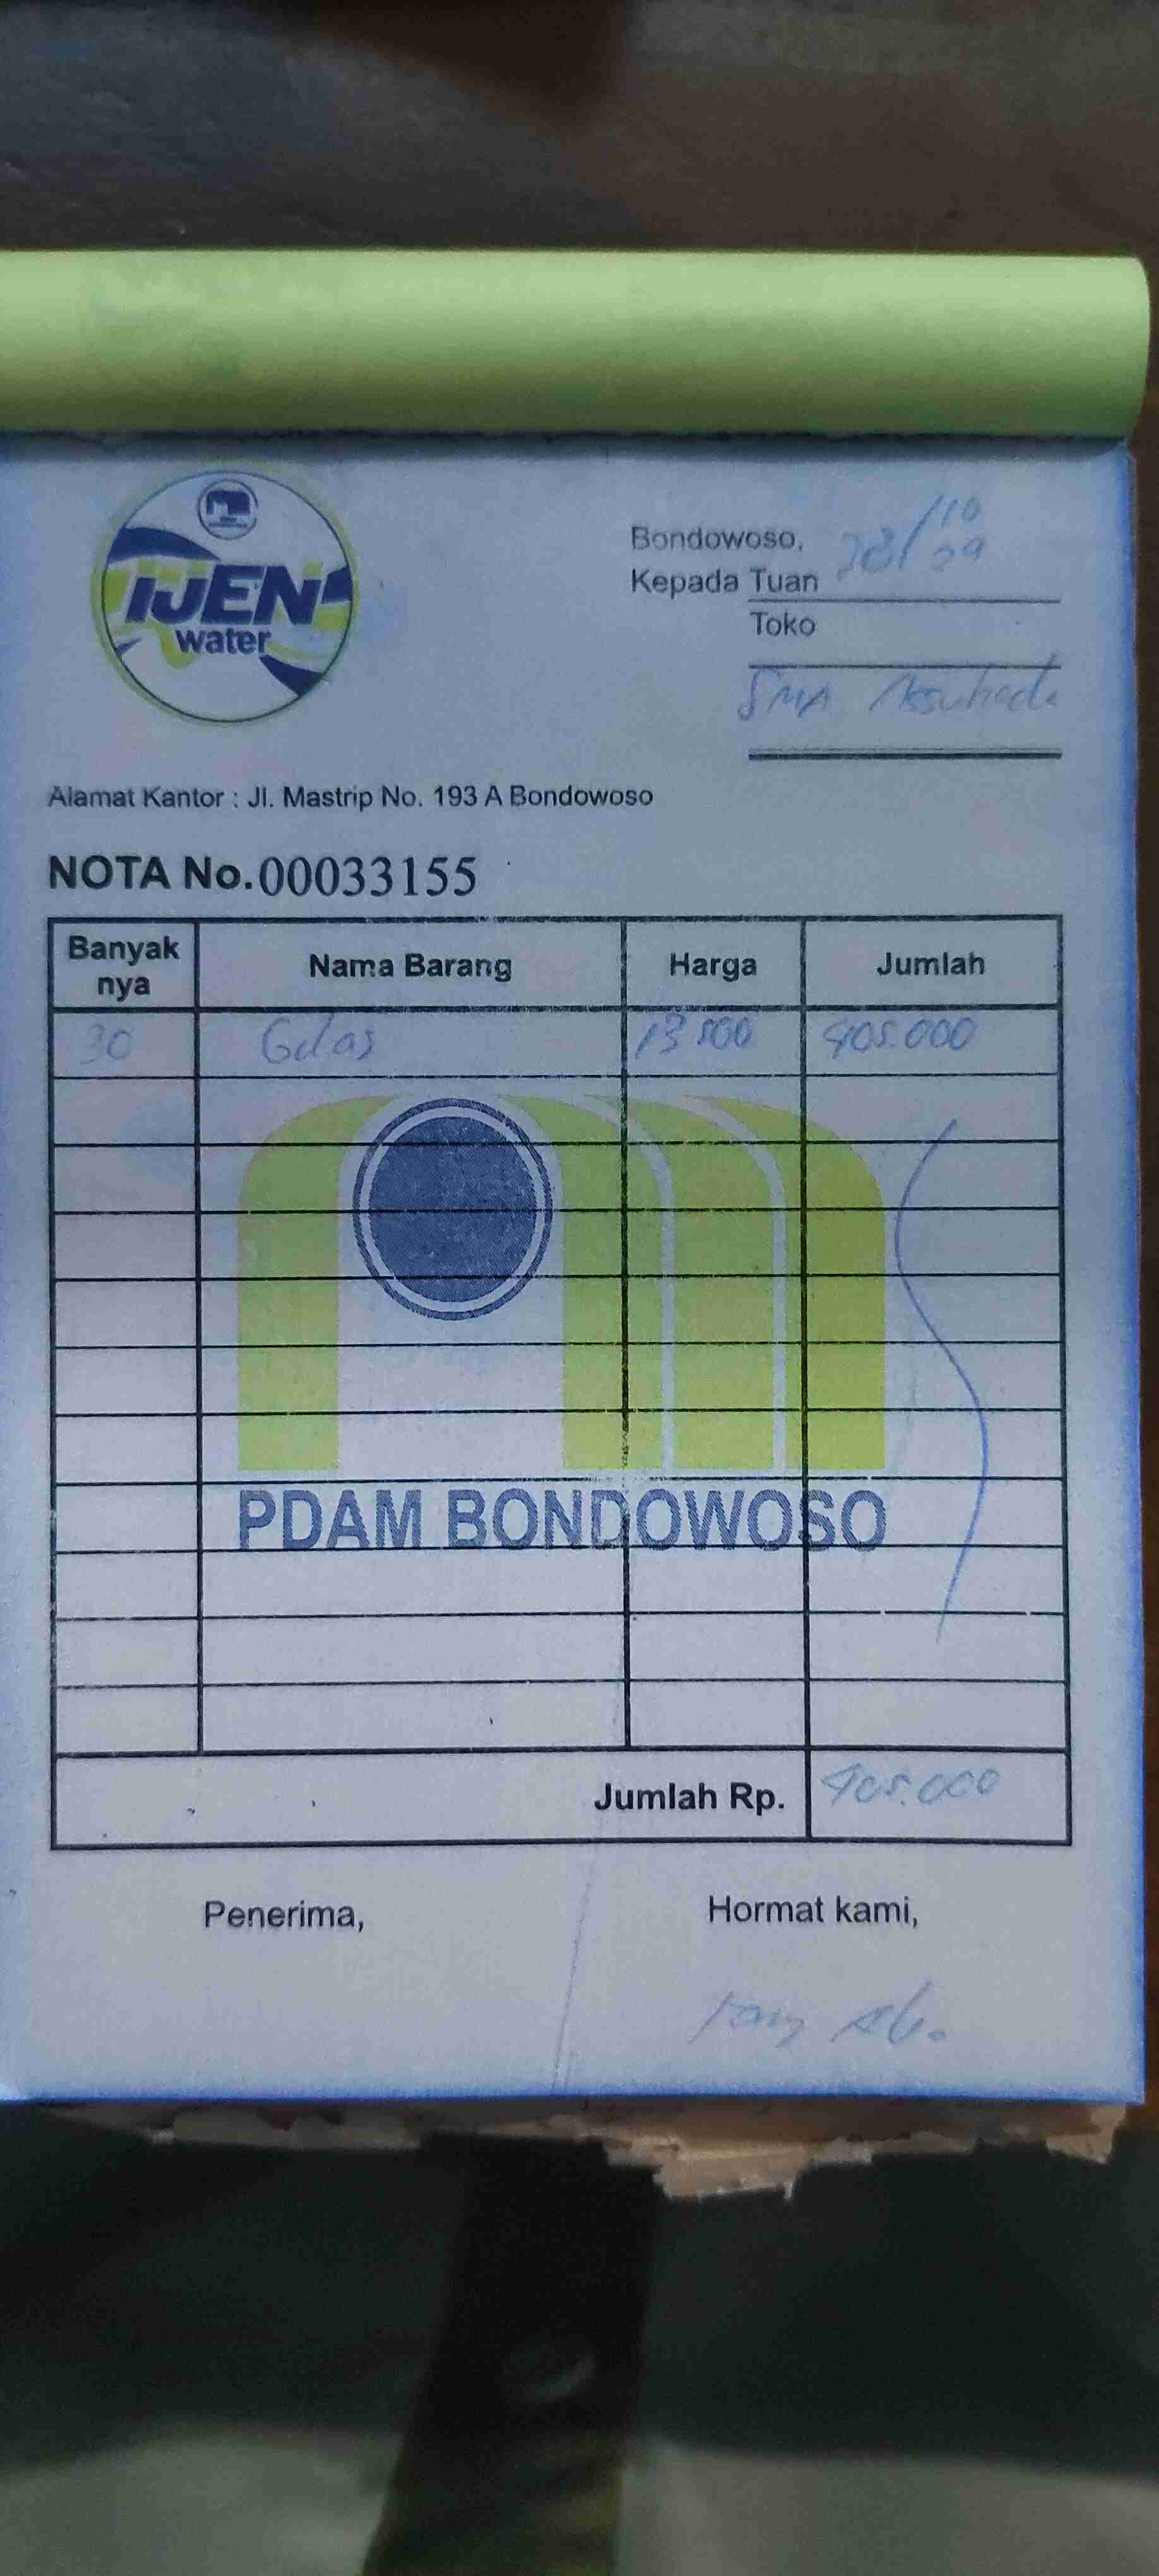 IJEN
water
Bondowoso, 28/10
Kepada Tuan
Toko
SMA
Alamat Kantor : Jl. Mastrip No. 193 A Bondowoso
NOTA No. 00033155
Banyak nya Nama Barang Harga Jumlah
30 Gelas 13.500 405.000
PDAM BONDOWOSO
Jumlah Rp. 405.000
Penerima, Hormat kami,